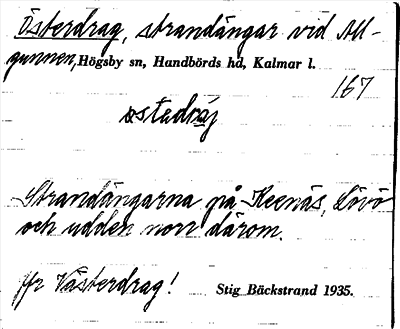 Österdrag, strandängar vid All-
gunnen, Högsby sn, Handbörds hd, Kalmar l.
167
Strandängarna på Keenäs, Lövö
och udden norr därom.
Jfr Västerdrag!
Stig Bäckstrand 1935.